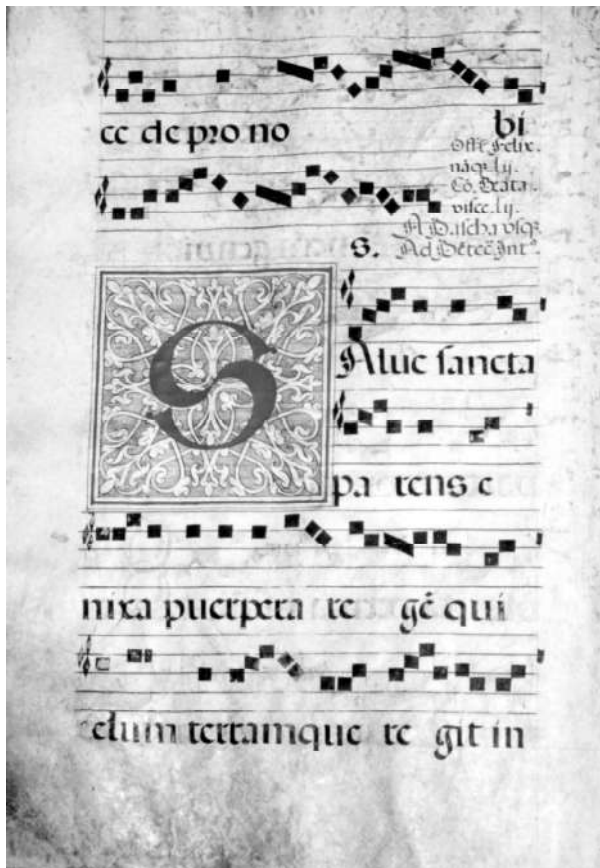 ce de pro no bi
Offe. Felix.
nāq. lij.
Cō. Beata.
visce. lij.
s. A Pascha vsq.
Ad Intº.
SAlue sancta
pa rens e
nixa puerpera re gē qui
celum terramque re git in